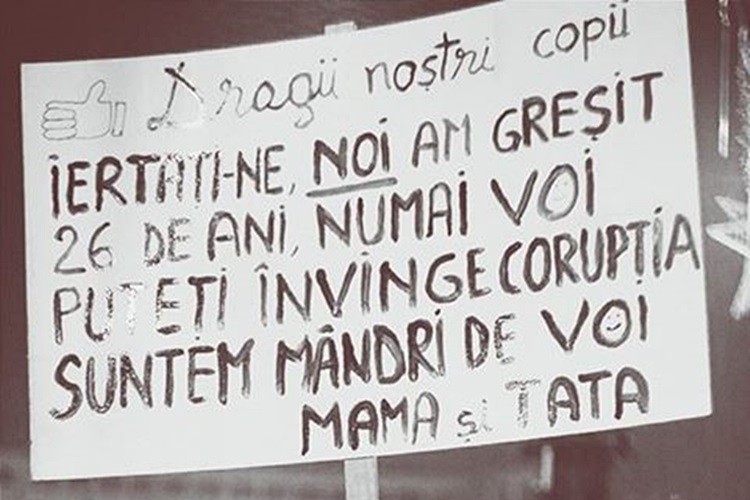 Dragii noștri copii
IERTAȚI-NE, NOI AM GREȘIT
26 DE ANI, NUMAI VOI
PUTEȚI ÎNVINGE CORUPȚIA
SUNTEM MÂNDRI DE VOI
MAMA și TATA